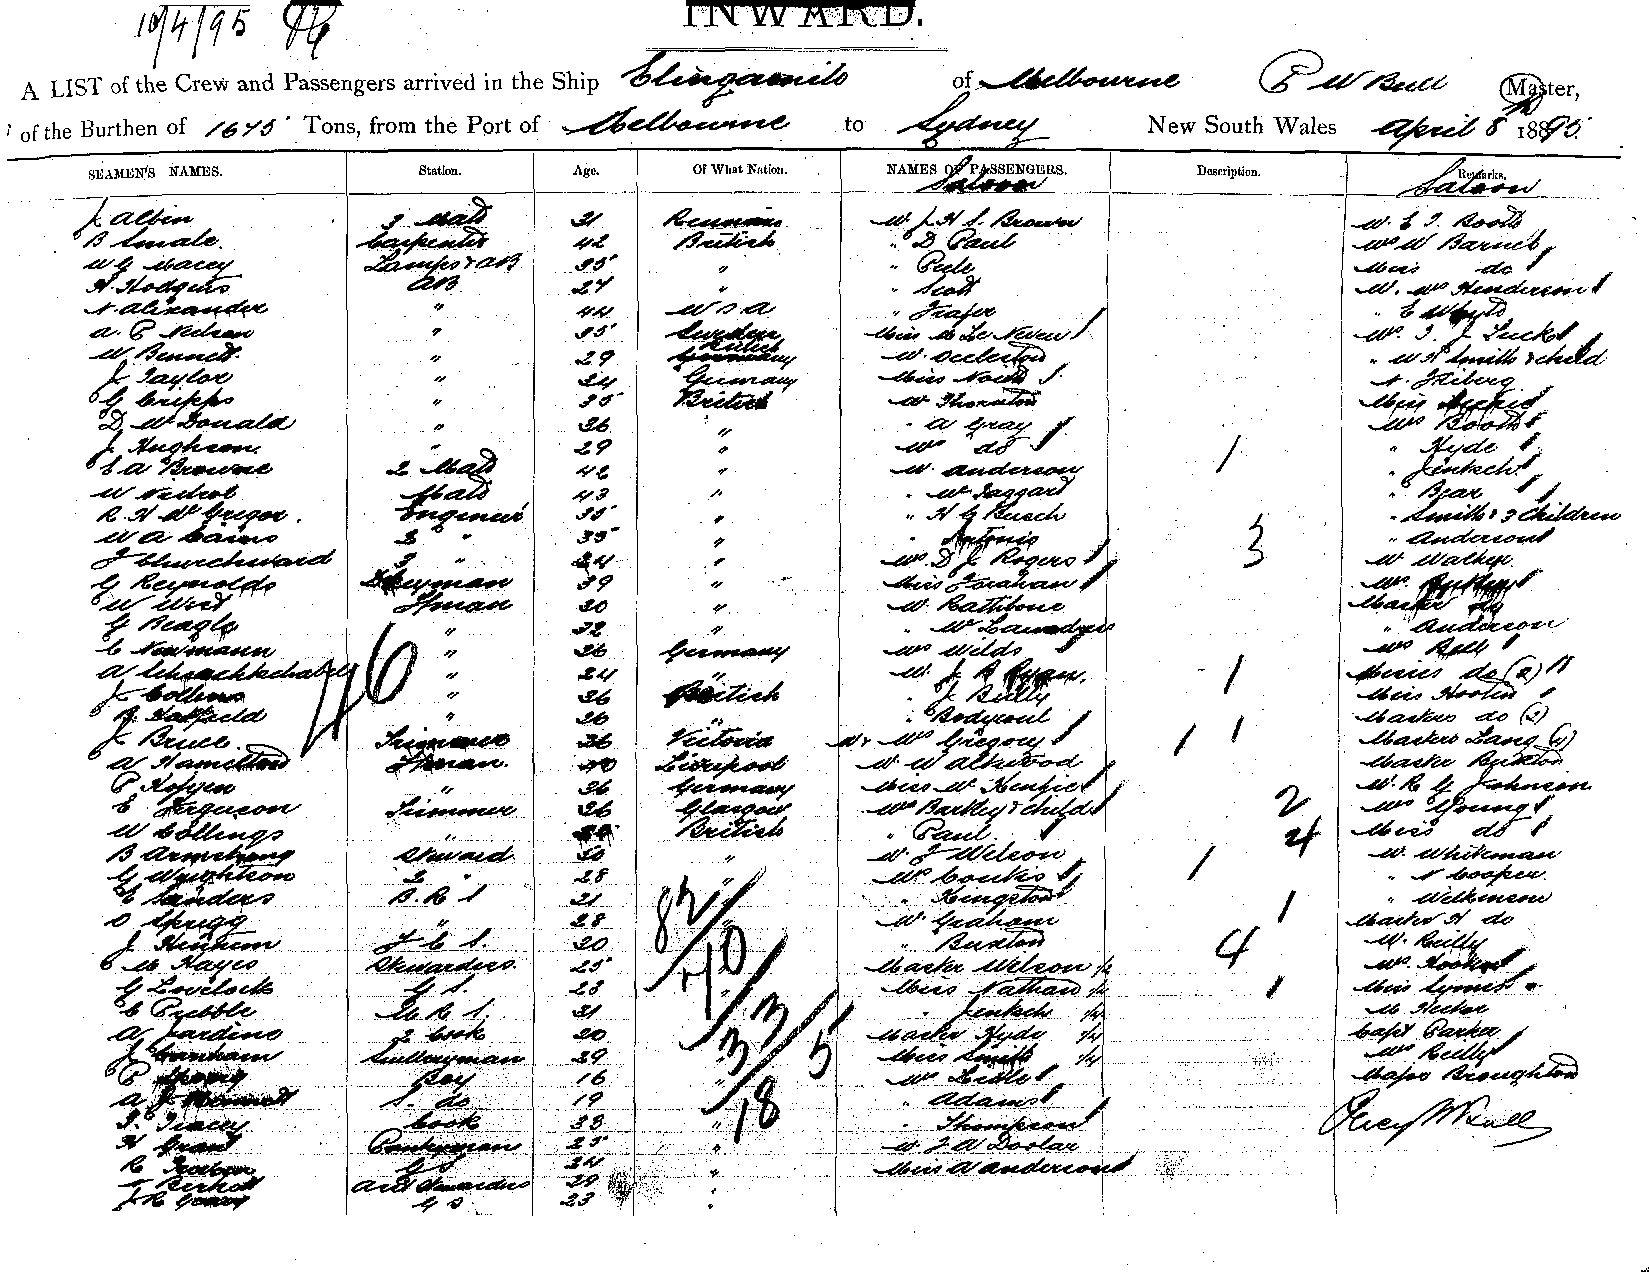 10/4/95
INWARD.
A LIST of the Crew and Passengers arrived in the Ship Elingamite of Melbourne P W Bull Master,
of the Burthen of 1675 Tons, from the Port of Melbourne to Sydney New South Wales April 8 1895.
SEAMEN'S NAMES. Station. Age. Of What Nation. NAMES OF PASSENGERS. Description. Remarks.
Saloon Saloon
J Albin 3 Mate 31 M. J. H. S. Brown M. E. T. Booth
B Smale. Carpenter 42 British " D Paul Mrs W Barnet
W G Macey Lamps & AB 35 " " Peele Miss do
H. Hodgins AB 27 " " Scott M. Mrs Henderson
N. Alexander " 44 U S A " Frazer " E White
A. P Neilson " 35 Sweden M. T. J. Luck
W Bennett. " 29 British M. Eccleston " W H Smith & child
J Taylor " 24 Germany Miss North N. Friberg
G Cripps " 35 British M Thornton Miss
D McDonald " 26 " " A Gray Mrs Booth
J. Hughson. " 29 " Mrs do 1 " Hyde
E A Browne 2 Mate 42 " M. Anderson " Jentsch
W Nichol Mate 43 " " McTaggard " Bear
R. H. McGregor. Engineer 35 " " H G Busch " Smith & 3 children
W A Cains 2 " 35 " " Antonio 3 " Anderson
J Churchward 3 " 24 " Mrs D J Rogers M Walker
G Reynolds 39 " Miss Mrs
W West Fman 30 " M. Rathbone Master do
G Beagle " 32 " " " Anderson
C Newmann " 26 Germany Mrs Wilds Mrs Bell
A " 24 " M. J R Ryan. 1 Misses do (2)
J Collins " 26 British " J Billy Miss Hoolin
R. Hatfield " 26 " " Masters do (2)
J Bruce. Trimmer 36 Victoria Mr & Mrs Gregory 1 1 Masters Lang
A Hamilton Fman. 30 Liverpool M W Alwood Master Buxton
P Hofgen " 26 Germany Miss M. R G Johnson
E Ferguson Trimmer 26 Glasgow Mrs Barkley & child 2 Mrs Young
W Collings " British " Paul. 4 Miss do
B Armstrong Steward 30 " M. J Wilson M. Whiteman
G Wrightson 2 " 28 " Mrs Counks 1 " N Cooper.
C Sanders B. R S 21 82 " Kingston 1 " Wilkinson
O Sprigg " 28 " M Graham Master H do
J. Hinnum F C S. 20 " Buxton 4 M. Reilly
M Hayes Stewardess. 25 Master Wilson ½ Mrs. Hooker
G Lovelock G S. 23 Miss Nathan ½ 1 Miss Symes
C Prebble B R S. 21 " Jentsch ½ M Hicker
A Jardine 2 Cook 20 Master Hyde ¼ Capt Parker
J Cranham Sculleryman 29 Miss Smith ¼ Mrs Reilly
P Boy 16 " Mrs Lisle Major Broughton
A J 19 " " Adams
T. Tracey Cook 38 " " Thompson
H Grant Pantryman 25 " M J W Doolan
R G S 24 Miss A Anderson
Asst Stewardess 29
J. R G S 23
46
13
3
5
18